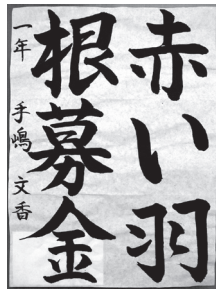 赤い羽
根募金
一年 手嶋 文香